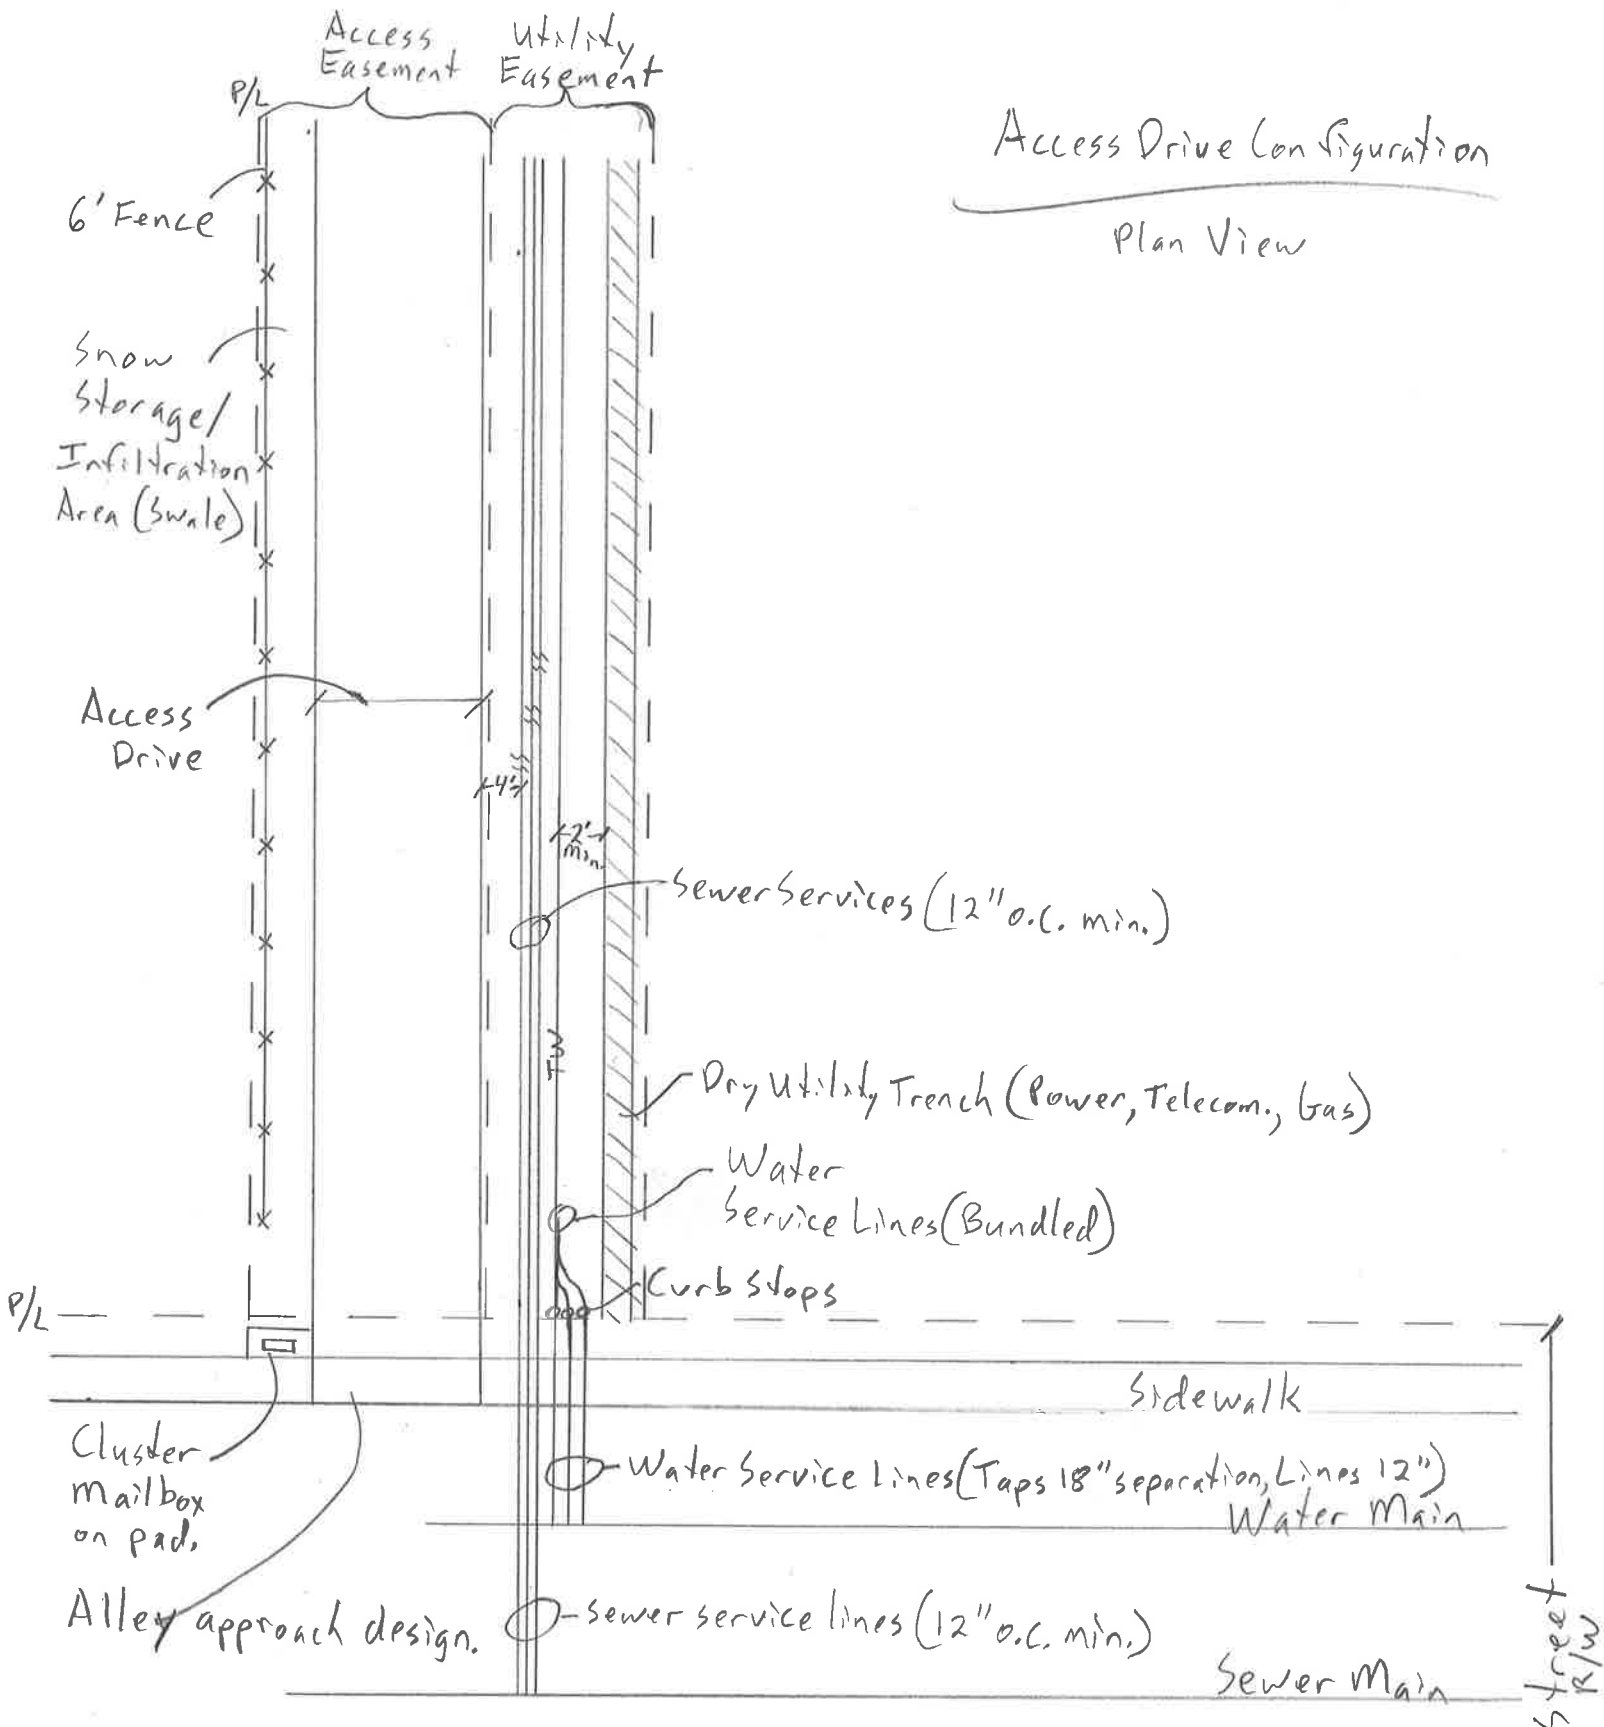 Access
Easement
Utility
Easement
P/L
Access Drive Configuration
Plan View
6' Fence
Snow
Storage/
Infiltration
Area (Swale)
SS
SS
SS
Access
Drive
4'
2'
min.
Sewer Services (12" o.c. min.)
W
Dry Utility Trench (Power, Telecom., Gas)
Water
Service Lines (Bundled)
Curb Stops
P/L
Sidewalk
Cluster
Mailbox
on pad.
Water Service Lines (Taps 18" separation, Lines 12")
Water Main
Alley approach design.
Sewer service lines (12" o.c. min.)
Sewer Main
Street
R/W